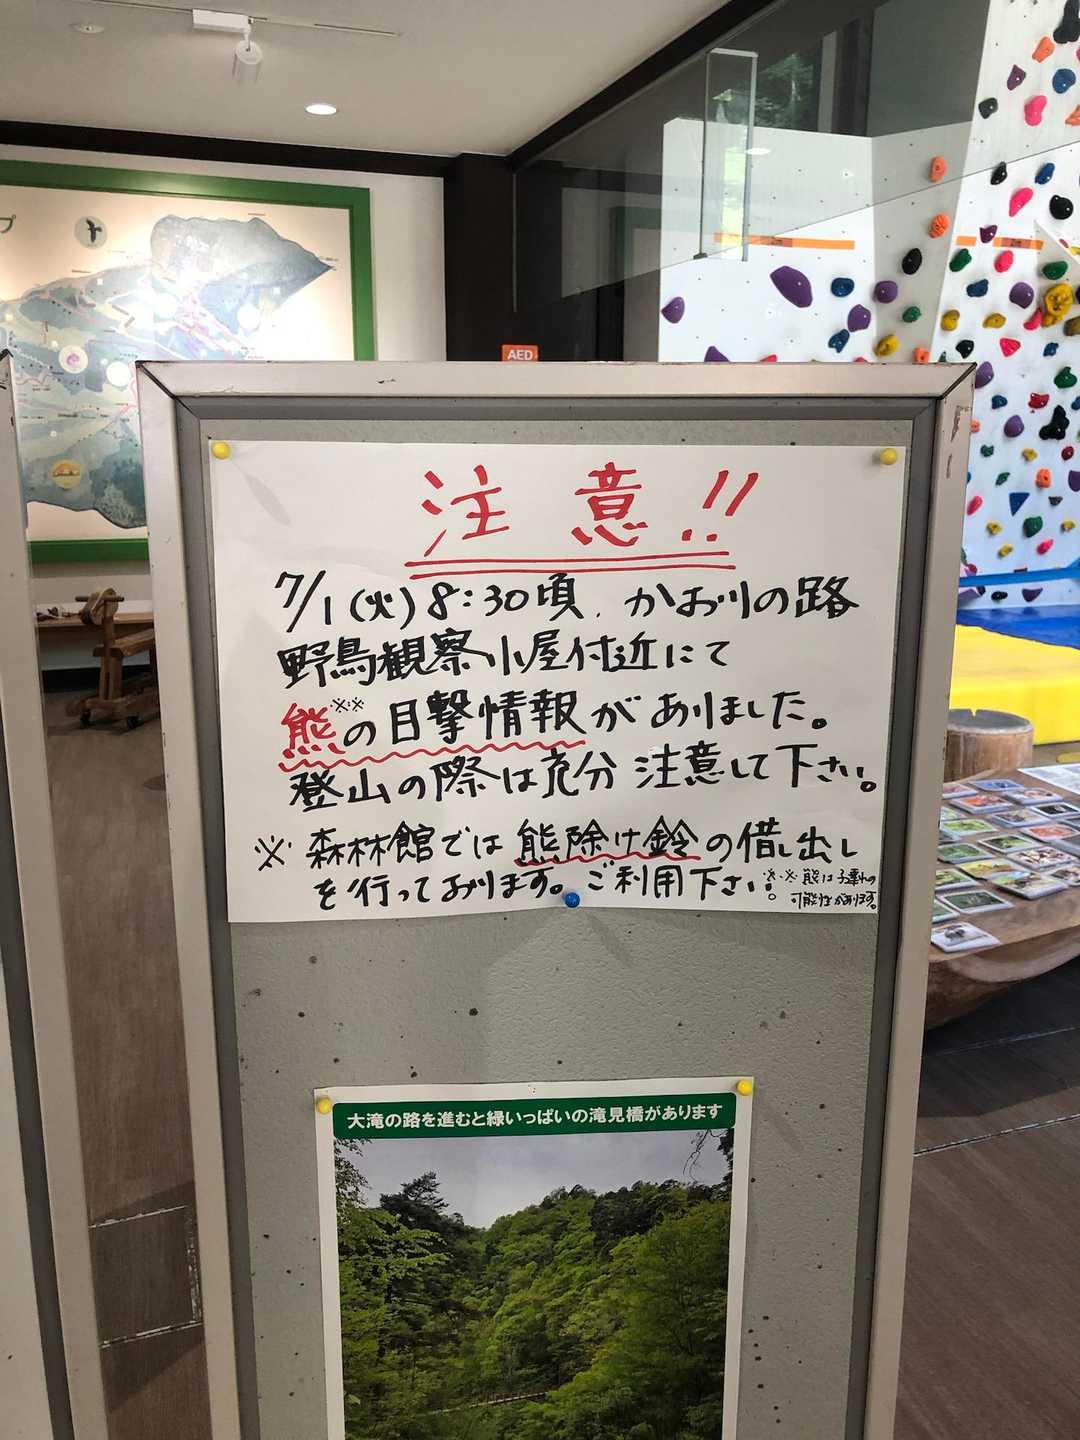 プ
AED
2m
2m
注意!!
7/1(火)8:30頃、かおりの路
野鳥観察小屋付近にて
熊※※の目撃情報がありました。
登山の際は充分注意して下さい。
※森林館では熊除け鈴の借し出し
を行っております。ご利用下さい。
※※熊は子連れの
可能性があります。
大滝の路を進むと緑いっぱいの滝見橋があります